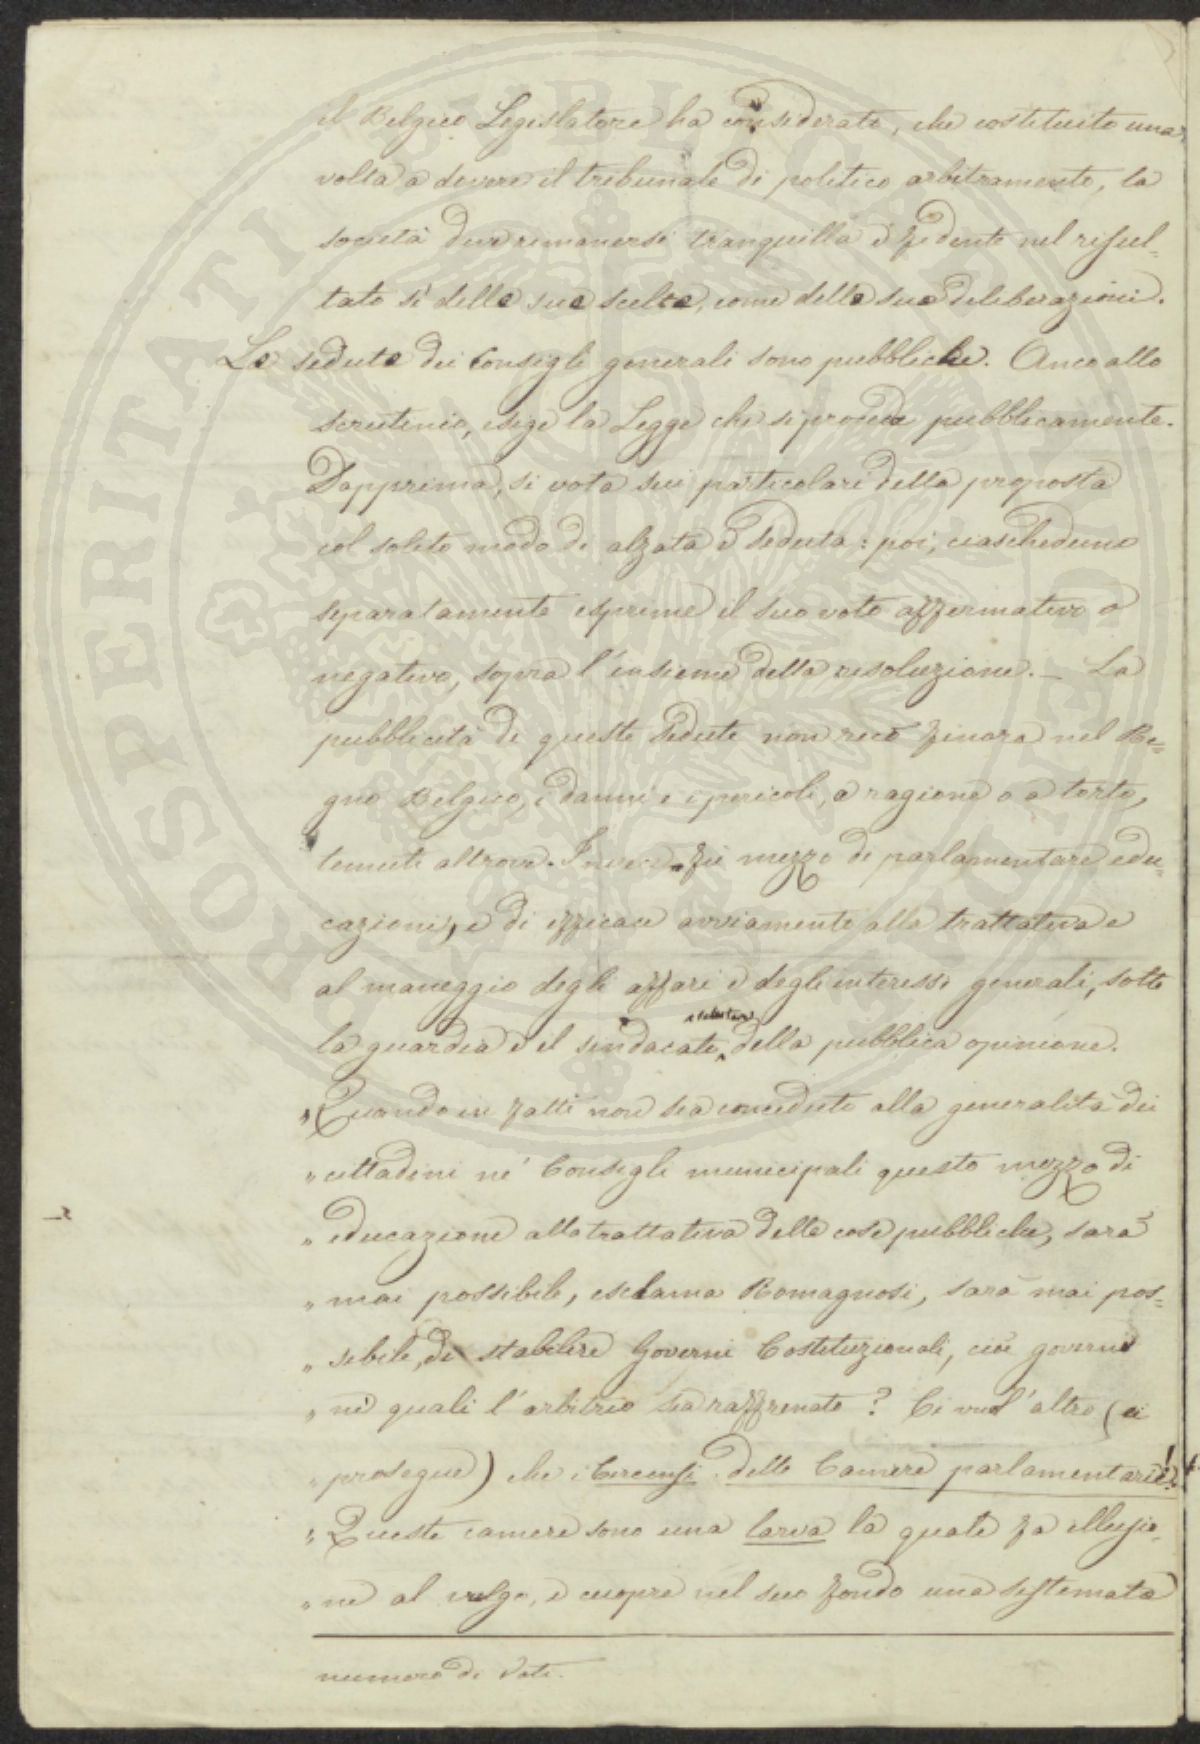 il Belgico Legislatore ha considerato, che costituito una
volta a dovere il tribunale di politico arbitramento, la
società deve rimanersi tranquilla e fidente nel risul=
tato sì delle sue scelte, come delle sue deliberazioni.
Le sedute dei Consigli generali sono pubbliche. Anco allo
scrutinio, esige la Legge che si proceda pubblicamente.
Dapprima, si vota sui particolari della proposta
col solito modo di alzata e seduta: poi, ciascheduno
separatamente esprime il suo voto affermativo o
negativo, sopra l'insieme della risoluzione. _ La
pubblicità di queste sedute non recò finora nel Re=
gno Belgico, i danni e i pericoli, a ragione o a torto,
temuti altrove. Invece fu mezzo di parlamentare edu=
cazione, e di efficace avviamento alla trattativa e
al maneggio degli affari e degli interessi generali, sotto
la guardia e il sindacato salutare della pubblica opinione.
"Quando in fatti non sia conceduto alla generalità dei
" cittadini ne' Consigli municipali questo mezzo di
" educazione alla trattativa delle cose pubbliche, sarà
" mai possibile, esclama Romagnosi, sarà mai pos=
" sibile, di stabilire Governi Costituzionali, cioè governi
" ne' quali l'arbitrio sia raffrenato? Ci vuol altro (ei
" prosegue) che i Circensi delle Camere parlamentarie!
" Queste camere sono una larva la quale fa illusio=
" ne al volgo, e cuopre nel suo fondo una sistemata
numero di Voti.
PROSPERITATI PUBLICAE AUGENDAE